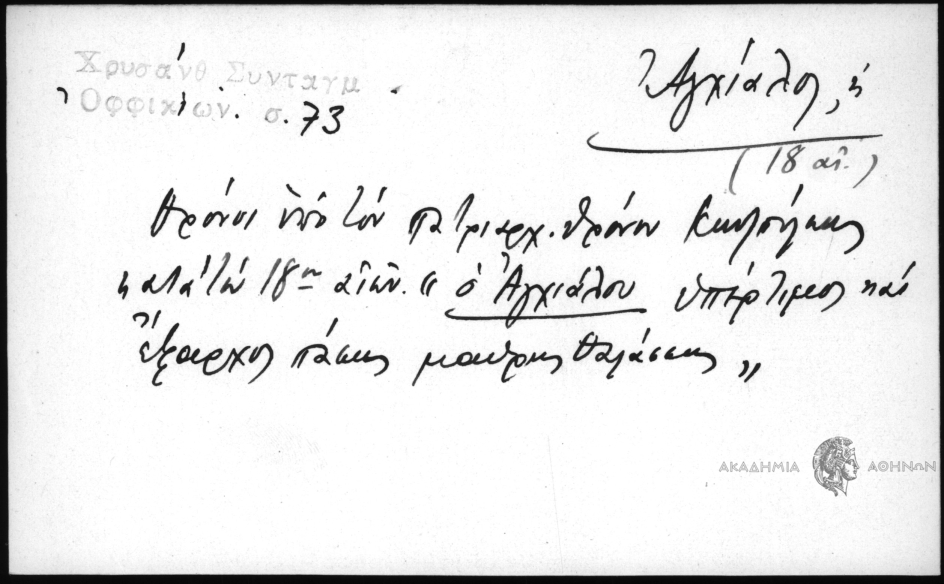 Χρυσάνθ Συνταγμ.
Ὀφφικίων. σ. 73
Ἀγχίαλος, ἡ
(18 αἰ.)
θρόνοι ὑπὸ τὸν πατριαρχ. θρόνον Κπόλεως
κατὰ τὸν 18ον αἰῶν. "ὁ Ἀγχιάλου ὑπέρτιμος καὶ
ἔξαρχος πάσης μαύρης θαλάσσης"
ΑΚΑΔΗΜΙΑ ΑΘΗΝΩΝ